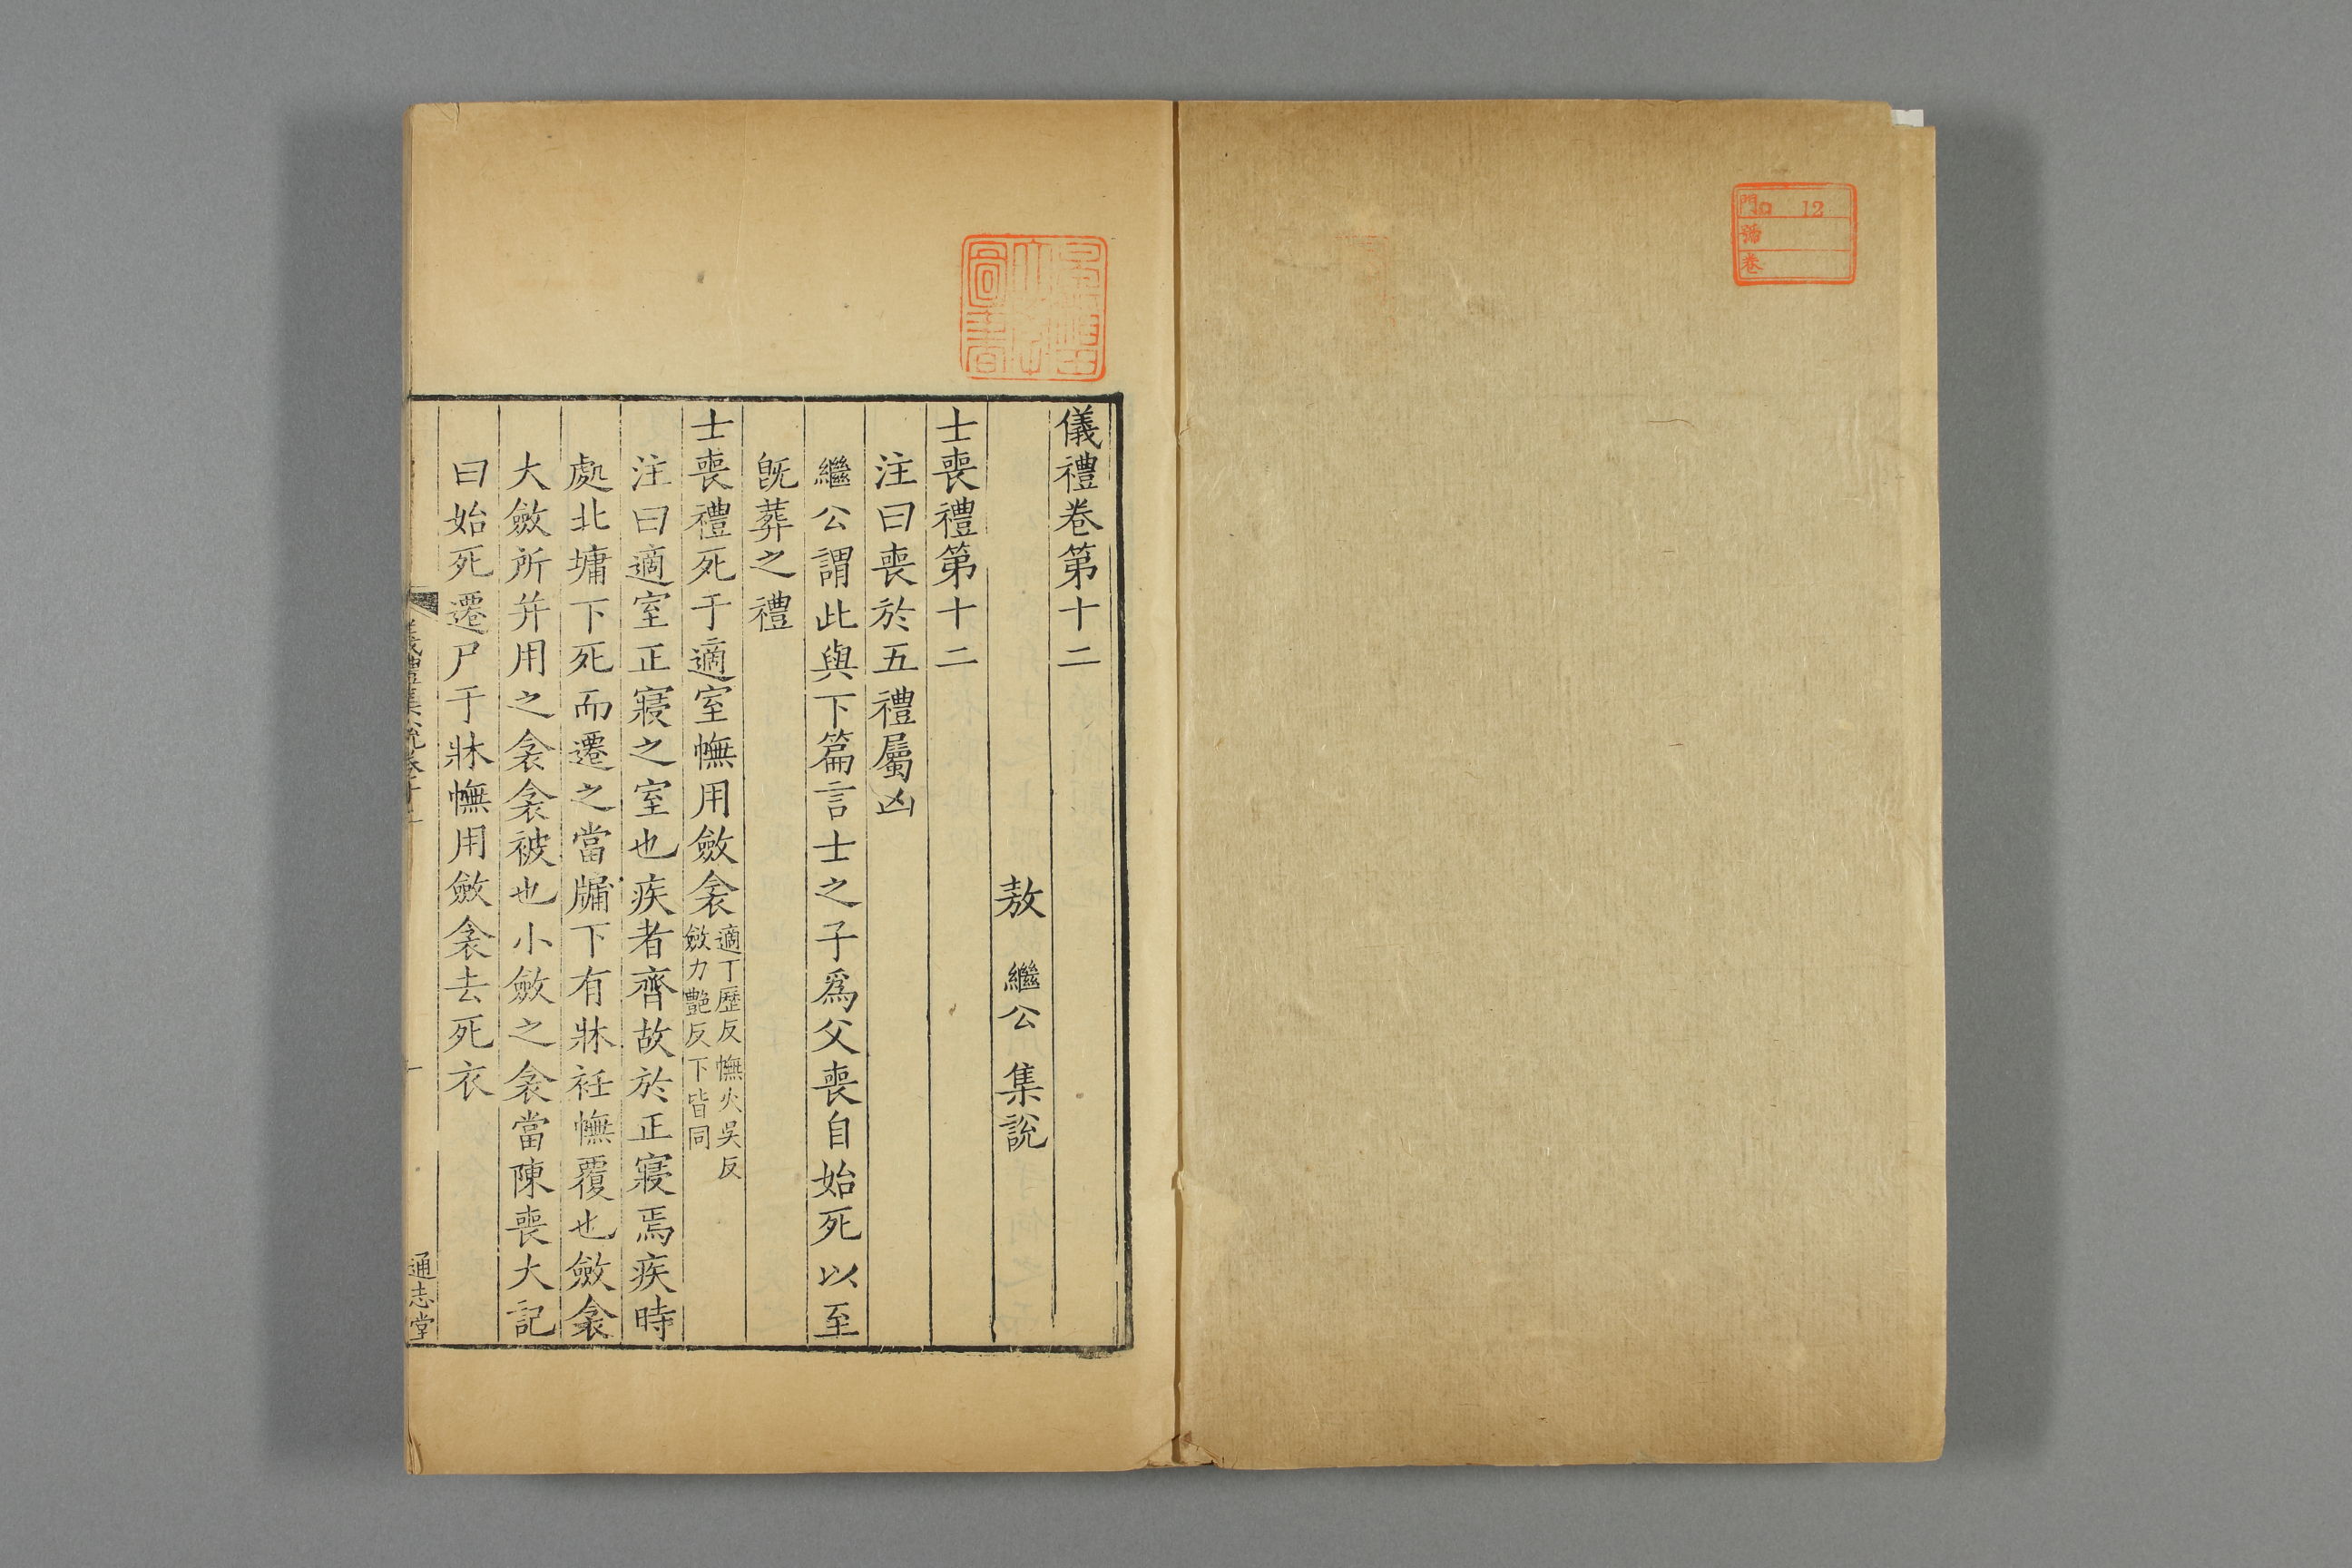 門 ロ 12
號
卷
儀禮卷第十二
敖繼公集說
士喪禮第十二
注曰喪於五禮屬凶
繼公謂此與下篇言士之子爲父喪自始死以至
旣葬之禮
士喪禮死于適室幠用斂衾適丁歷反幠火吳反
斂力豔反下皆同
注曰適室正寢之室也疾者齊故於正寢焉疾時
處北墉下死而遷之當牖下有牀衽幠覆也斂衾
大斂所幷用之衾衾被也小斂之衾當陳喪大記
曰始死遷尸于牀幠用斂衾去死衣
儀禮集說卷十二
一
通志堂